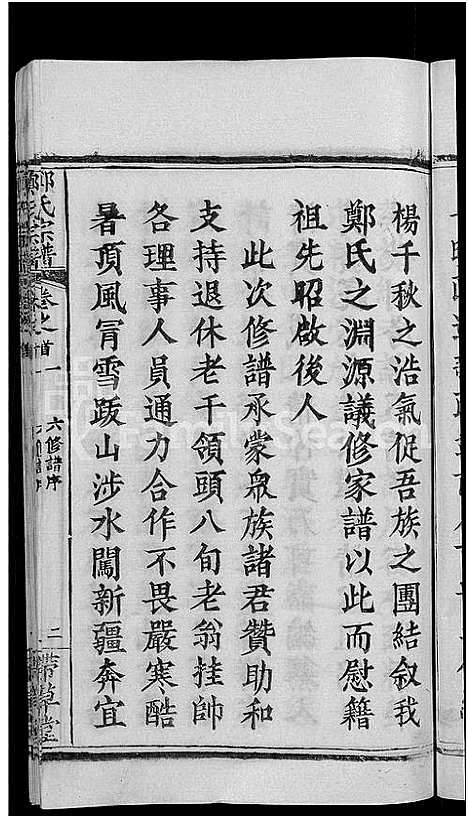 楊千秋之浩氣促吾族之團結叙我
鄭氏之淵源議修家譜以此而慰籍
祖先昭啟後人
此次修譜承蒙眾族諸君贊助和
支持退休老干領頭八旬老翁挂帥
各理事人員通力合作不畏嚴寒酷
暑頂風冒雪跋山涉水闖新疆奔宜
鄭氏宗譜
卷之首一
六修譜序
二
帶草堂
FamilySearch